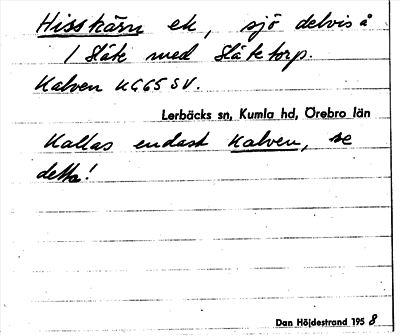 Hisskärn ek, sjö delvis å
1 Släte med Slätetorp.
Kalven KG65 SV.
Lerbäcks sn, Kumla hd, Örebro län
Kallas endast Kalven, se
detta!
Dan Höjdestrand 1958